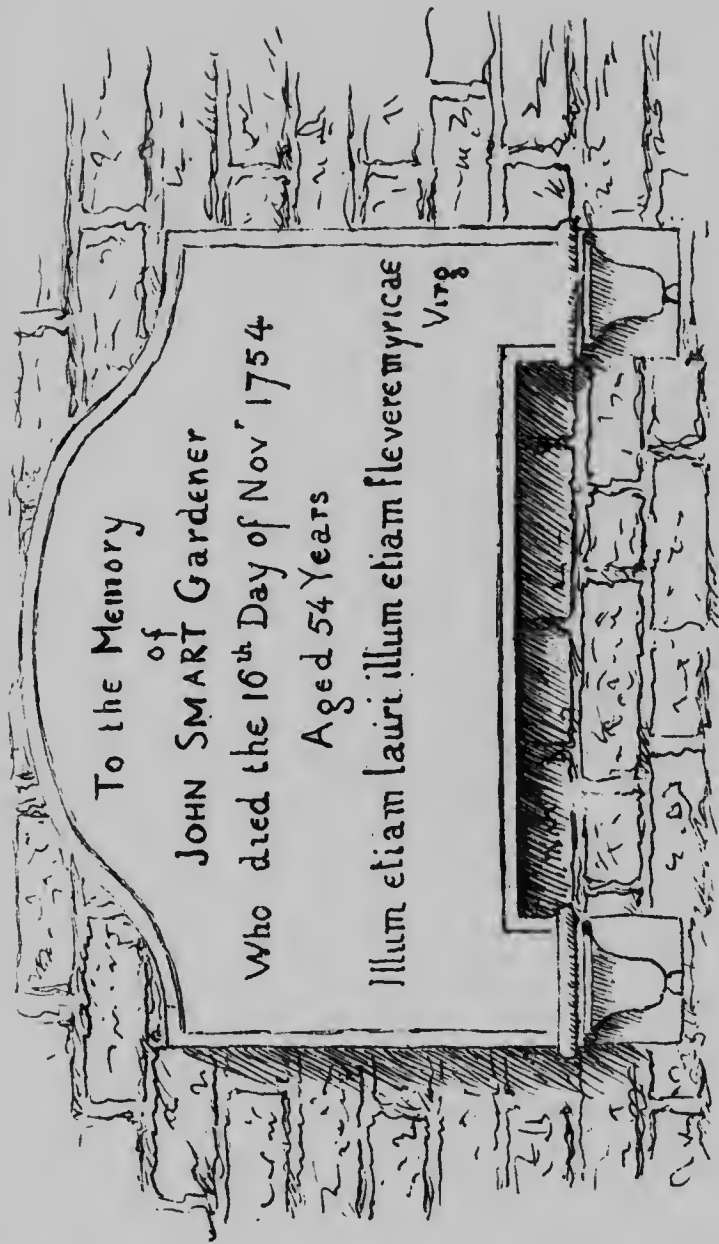 To the Memory
of
JOHN SMART Gardener
Who died the 16th Day of Novr 1754
Aged 54 Years
Illum etiam lauri illum etiam flevere myricae
Virg